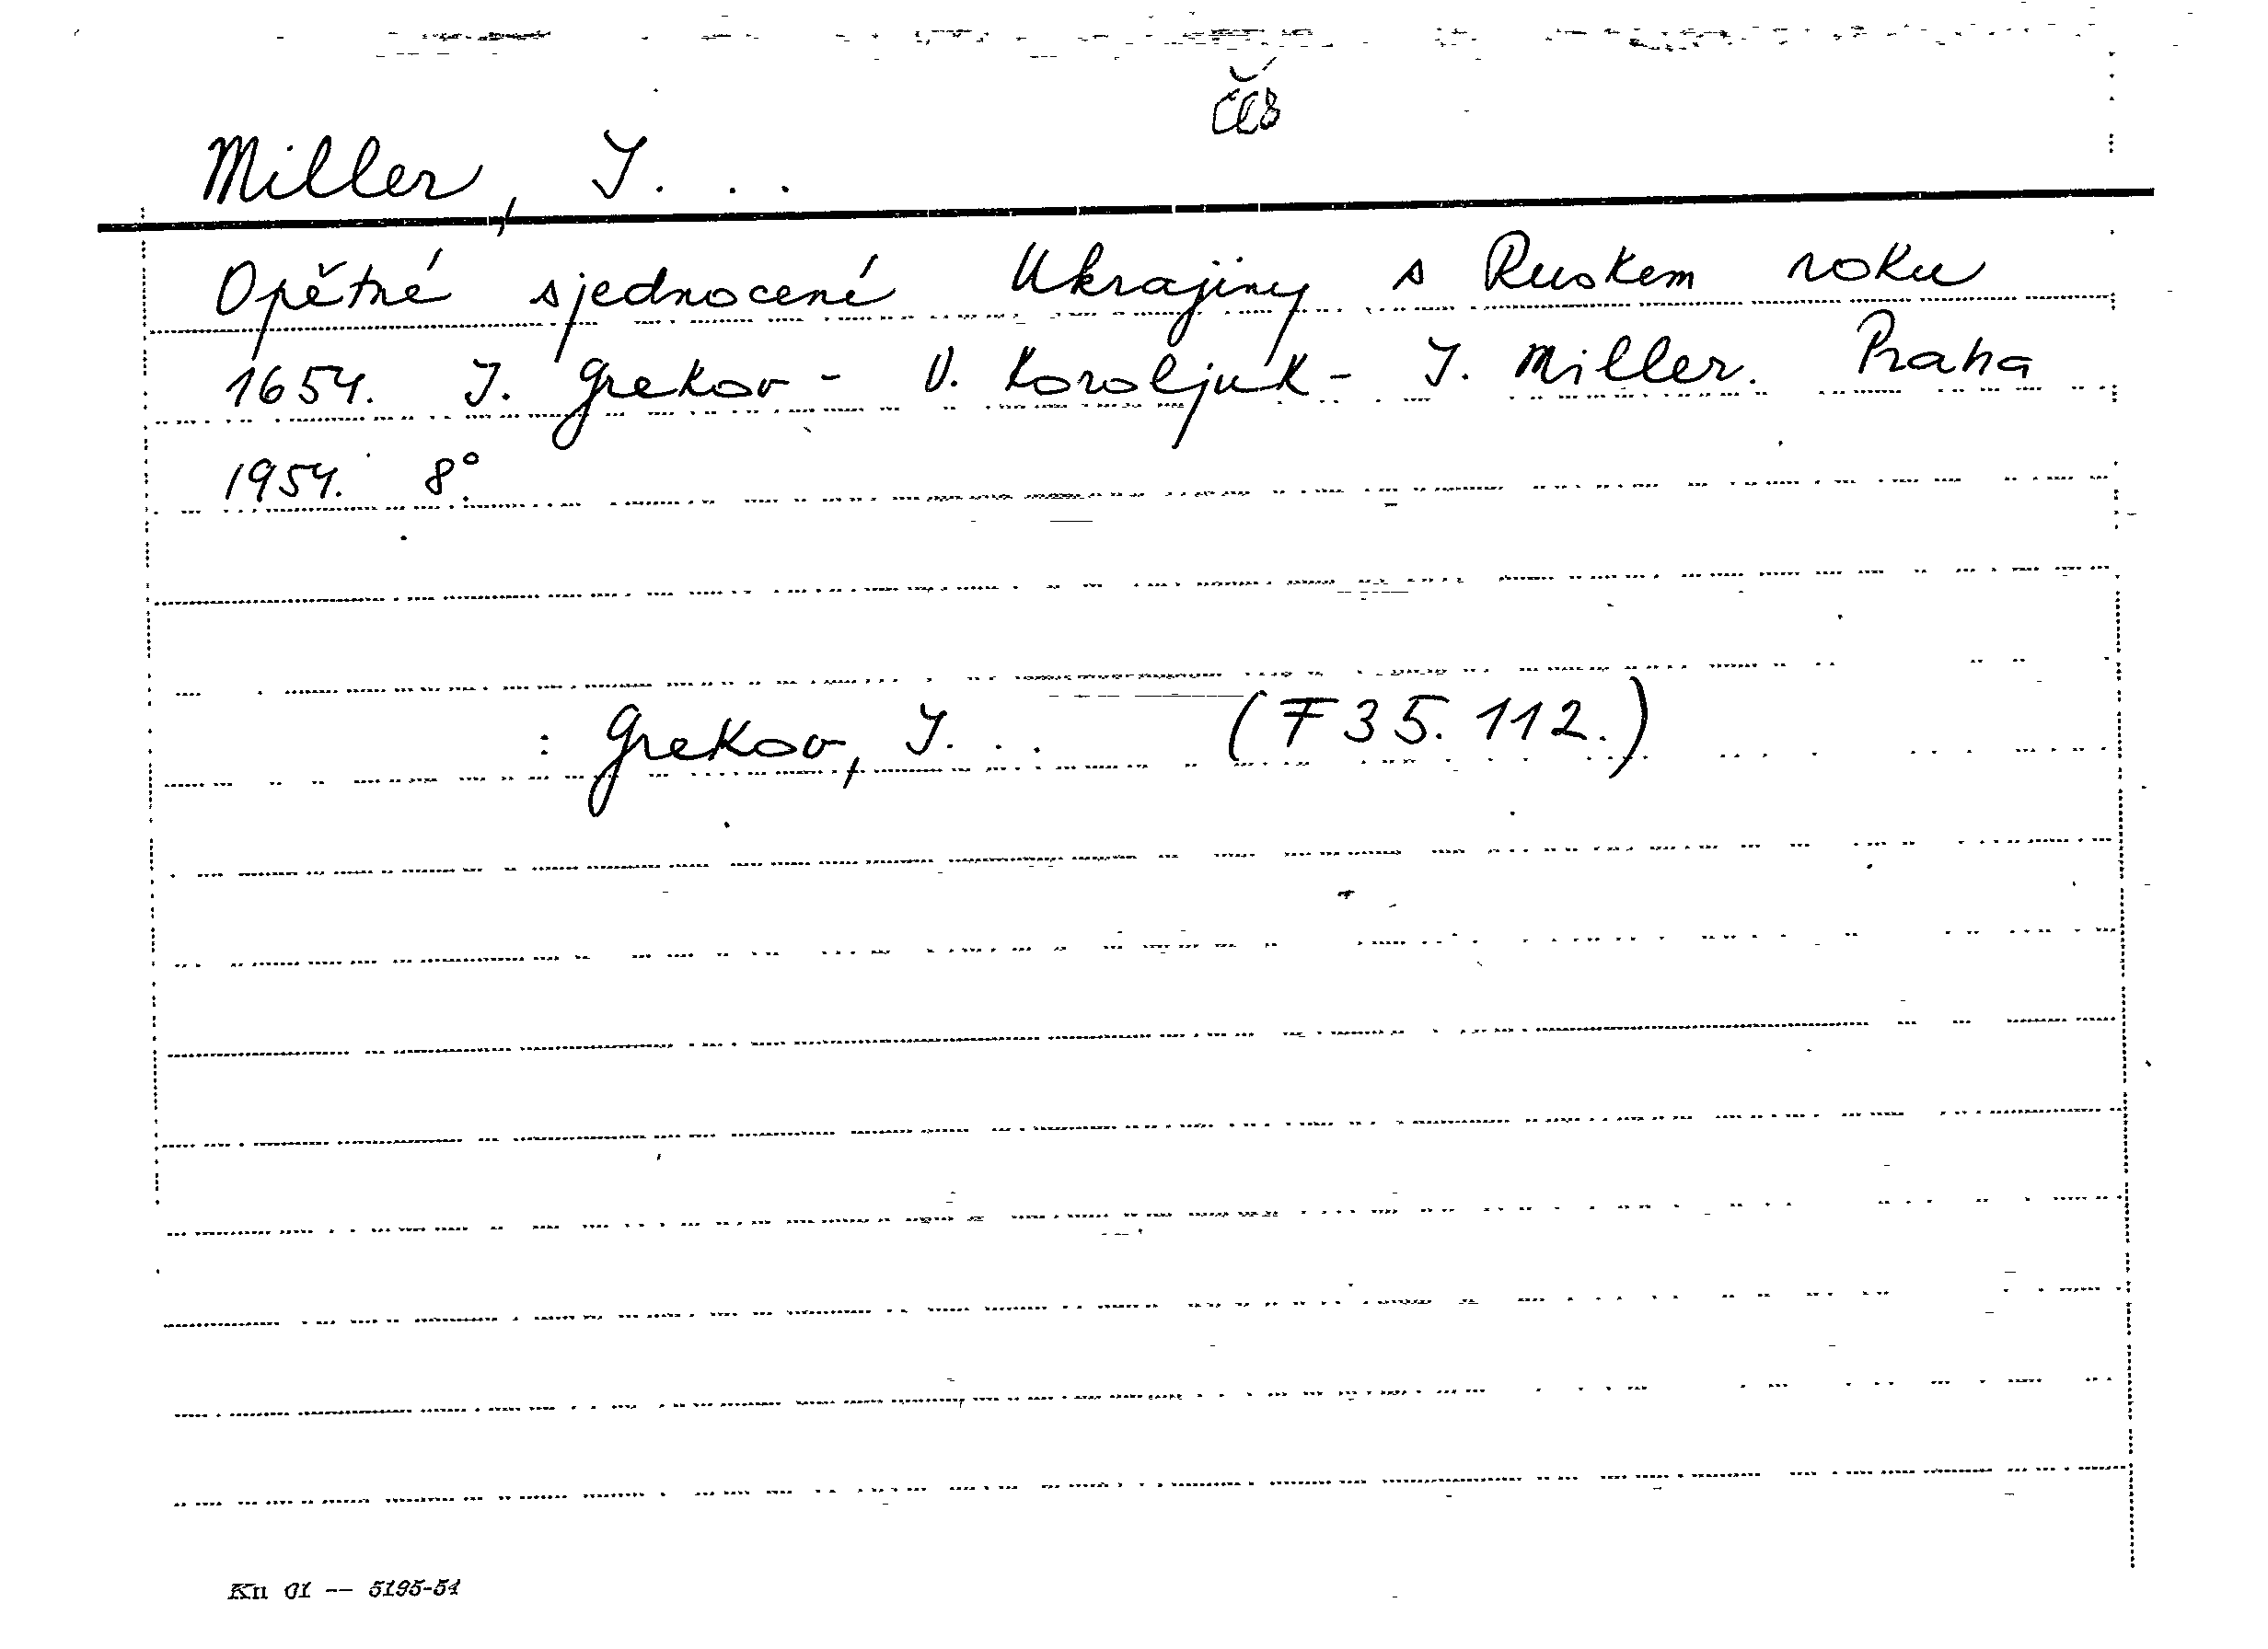 Miller, I. . .
Opětné sjednocené Ukrajiny s Ruskem roku
1654. I. Grekov - V. Koroljuk - I. Miller. Praha
1954. 8°.
: Grekov, I. . . (F 35.112.)
Kn 01 -- 5195-54